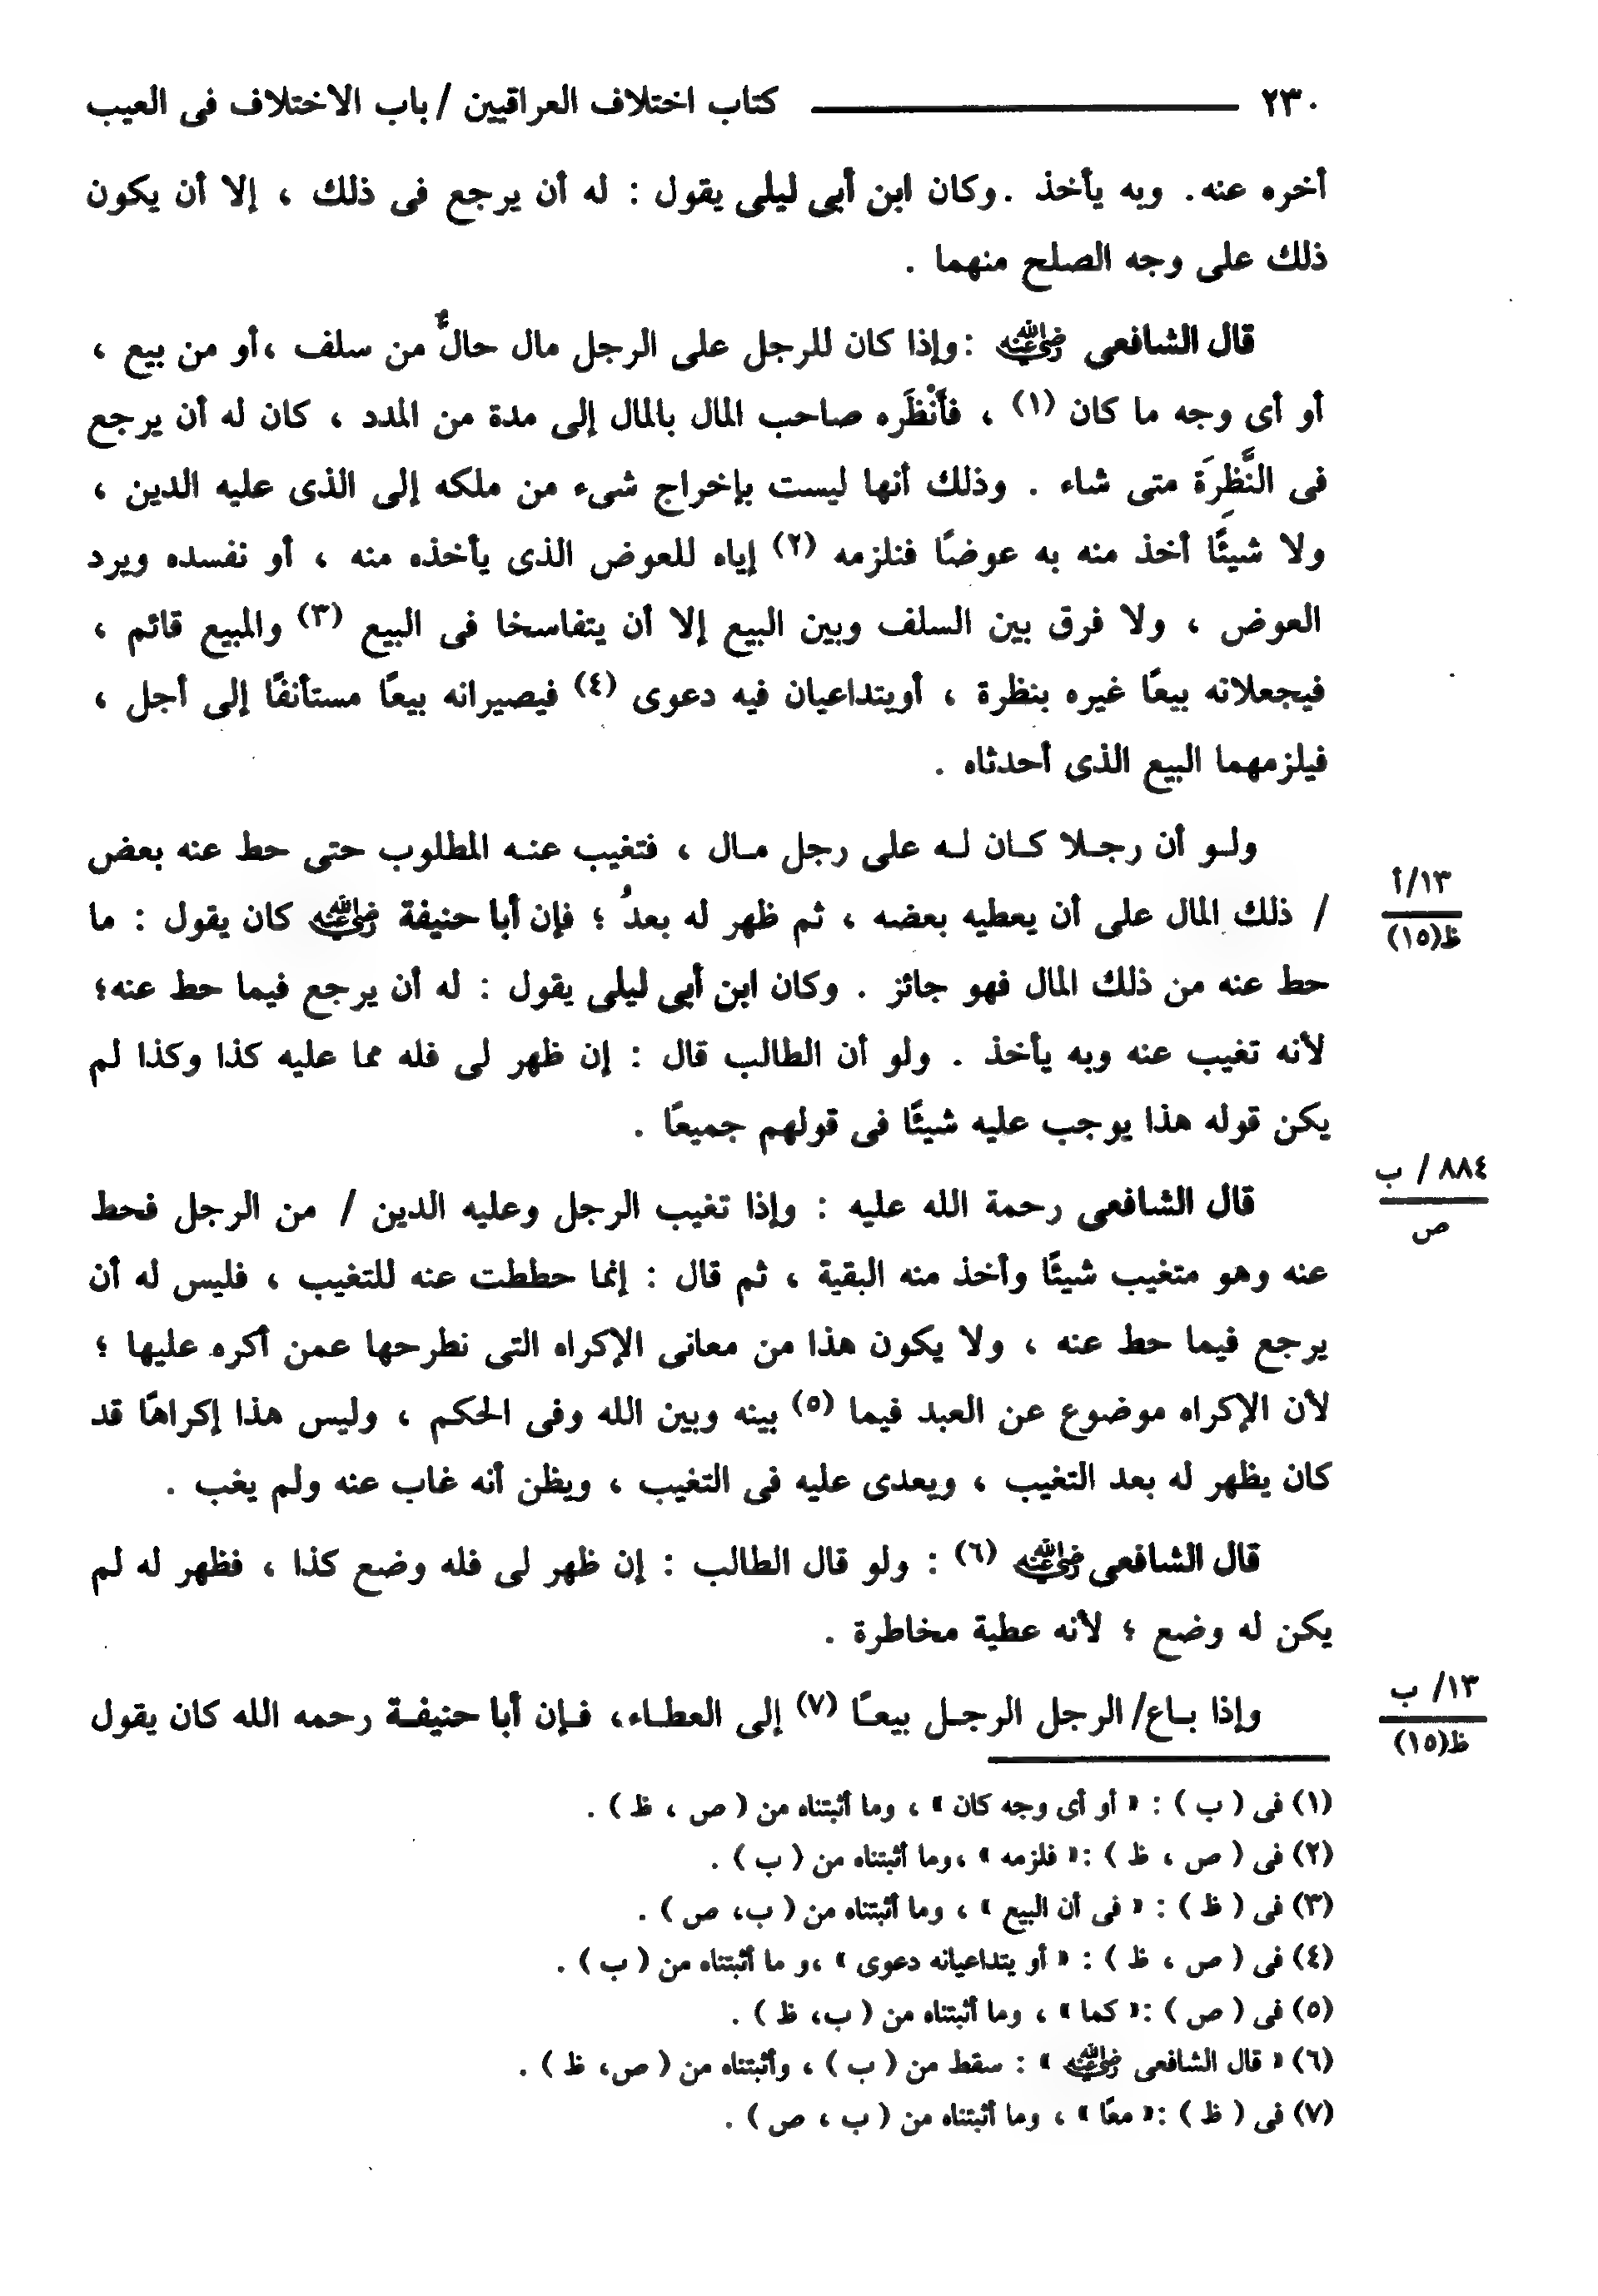 ٢٣٠ كتاب اختلاف العراقيين / باب الاختلاف فى العيب
أخره عنه. وبه يأخذ .وكان ابن أبى ليلى يقول : له أن يرجع فى ذلك ، إلا أن يكون
ذلك على وجه الصلح منهما .
قال الشافعى رضي الله عنه :وإذا كان للرجل على الرجل مال حالٌّ من سلف ،أو من بيع ،
أو أى وجه ما كان (١) ، فأَنْظَره صاحب المال بالمال إلى مدة من المدد ، كان له أن يرجع
فى النَّظِرَة متى شاء . وذلك أنها ليست بإخراج شىء من ملكه إلى الذى عليه الدين ،
ولا شيئًا أخذ منه به عوضًا فنلزمه (٢) إياه للعوض الذى يأخذه منه ، أو نفسده ويرد
العوض ، ولا فرق بين السلف وبين البيع إلا أن يتفاسخا فى البيع (٣) والمبيع قائم ،
فيجعلانه بيعًا غيره بنظرة ، أويتداعيان فيه دعوى (٤) فيصيرانه بيعًا مستأنفًا إلى أجل ،
فيلزمهما البيع الذى أحدثاه .
ولـو أن رجـلا كـان لـه على رجل مـال ، فتغيب عنـه المطلوب حتى حط عنه بعض
١٣/أ
ظ(١٥)
/ ذلك المال على أن يعطيه بعضه ، ثم ظهر له بعدُ ؛ فإن أبا حنيفة رضي الله عنه كان يقول : ما
حط عنه من ذلك المال فهو جائز . وكان ابن أبى ليلى يقول : له أن يرجع فيما حط عنه؛
لأنه تغيب عنه وبه يأخذ . ولو أن الطالب قال : إن ظهر لى فله مما عليه كذا وكذا لم
يكن قوله هذا يوجب عليه شيئًا فى قولهم جميعًا .
٨٨٤ / ب
ص
قال الشافعى رحمة الله عليه : وإذا تغيب الرجل وعليه الدين / من الرجل فحط
عنه وهو متغيب شيئًا وأخذ منه البقية ، ثم قال : إنما حططت عنه للتغيب ، فليس له أن
يرجع فيما حط عنه ، ولا يكون هذا من معانى الإكراه التى نطرحها عمن أكره عليها ؛
لأن الإكراه موضوع عن العبد فيما (٥) بينه وبين الله وفى الحكم ، وليس هذا إكراهًا قد
كان يظهر له بعد التغيب ، ويعدى عليه فى التغيب ، ويظن أنه غاب عنه ولم يغب .
قال الشافعى رضي الله عنه (٦) : ولو قال الطالب : إن ظهر لى فله وضع كذا ، فظهر له لم
يكن له وضع ؛ لأنه عطية مخاطرة .
١٣/ ب
ظ(١٥)
وإذا بـاع/ الرجل الرجـل بيعـًا (٧) إلى العطـاء، فـإن أبا حنيفـة رحمه الله كان يقول
(١) فى ( ب ) : « أو أى وجه كان » ، وما أثبتناه من ( ص ، ظ ) .
(٢) فى ( ص ، ظ ) :« فلزمه » ،وما أثبتناه من ( ب ) .
(٣) فى ( ظ ) : « فى أن البيع » ، وما أثبتناه من ( ب، ص ) .
(٤) فى ( ص ، ظ ) : « أو يتداعيانه دعوى » ،و ما أثبتناه من ( ب ) .
(٥) فى ( ص ) :« كما » ، وما أثبتناه من ( ب، ظ ) .
(٦) « قال الشافعى رضي الله عنه » : سقط من ( ب ) ، وأثبتناه من ( ص، ظ ) .
(٧) فى ( ظ ) :« معًا » ، وما أثبتناه من ( ب ، ص ) .